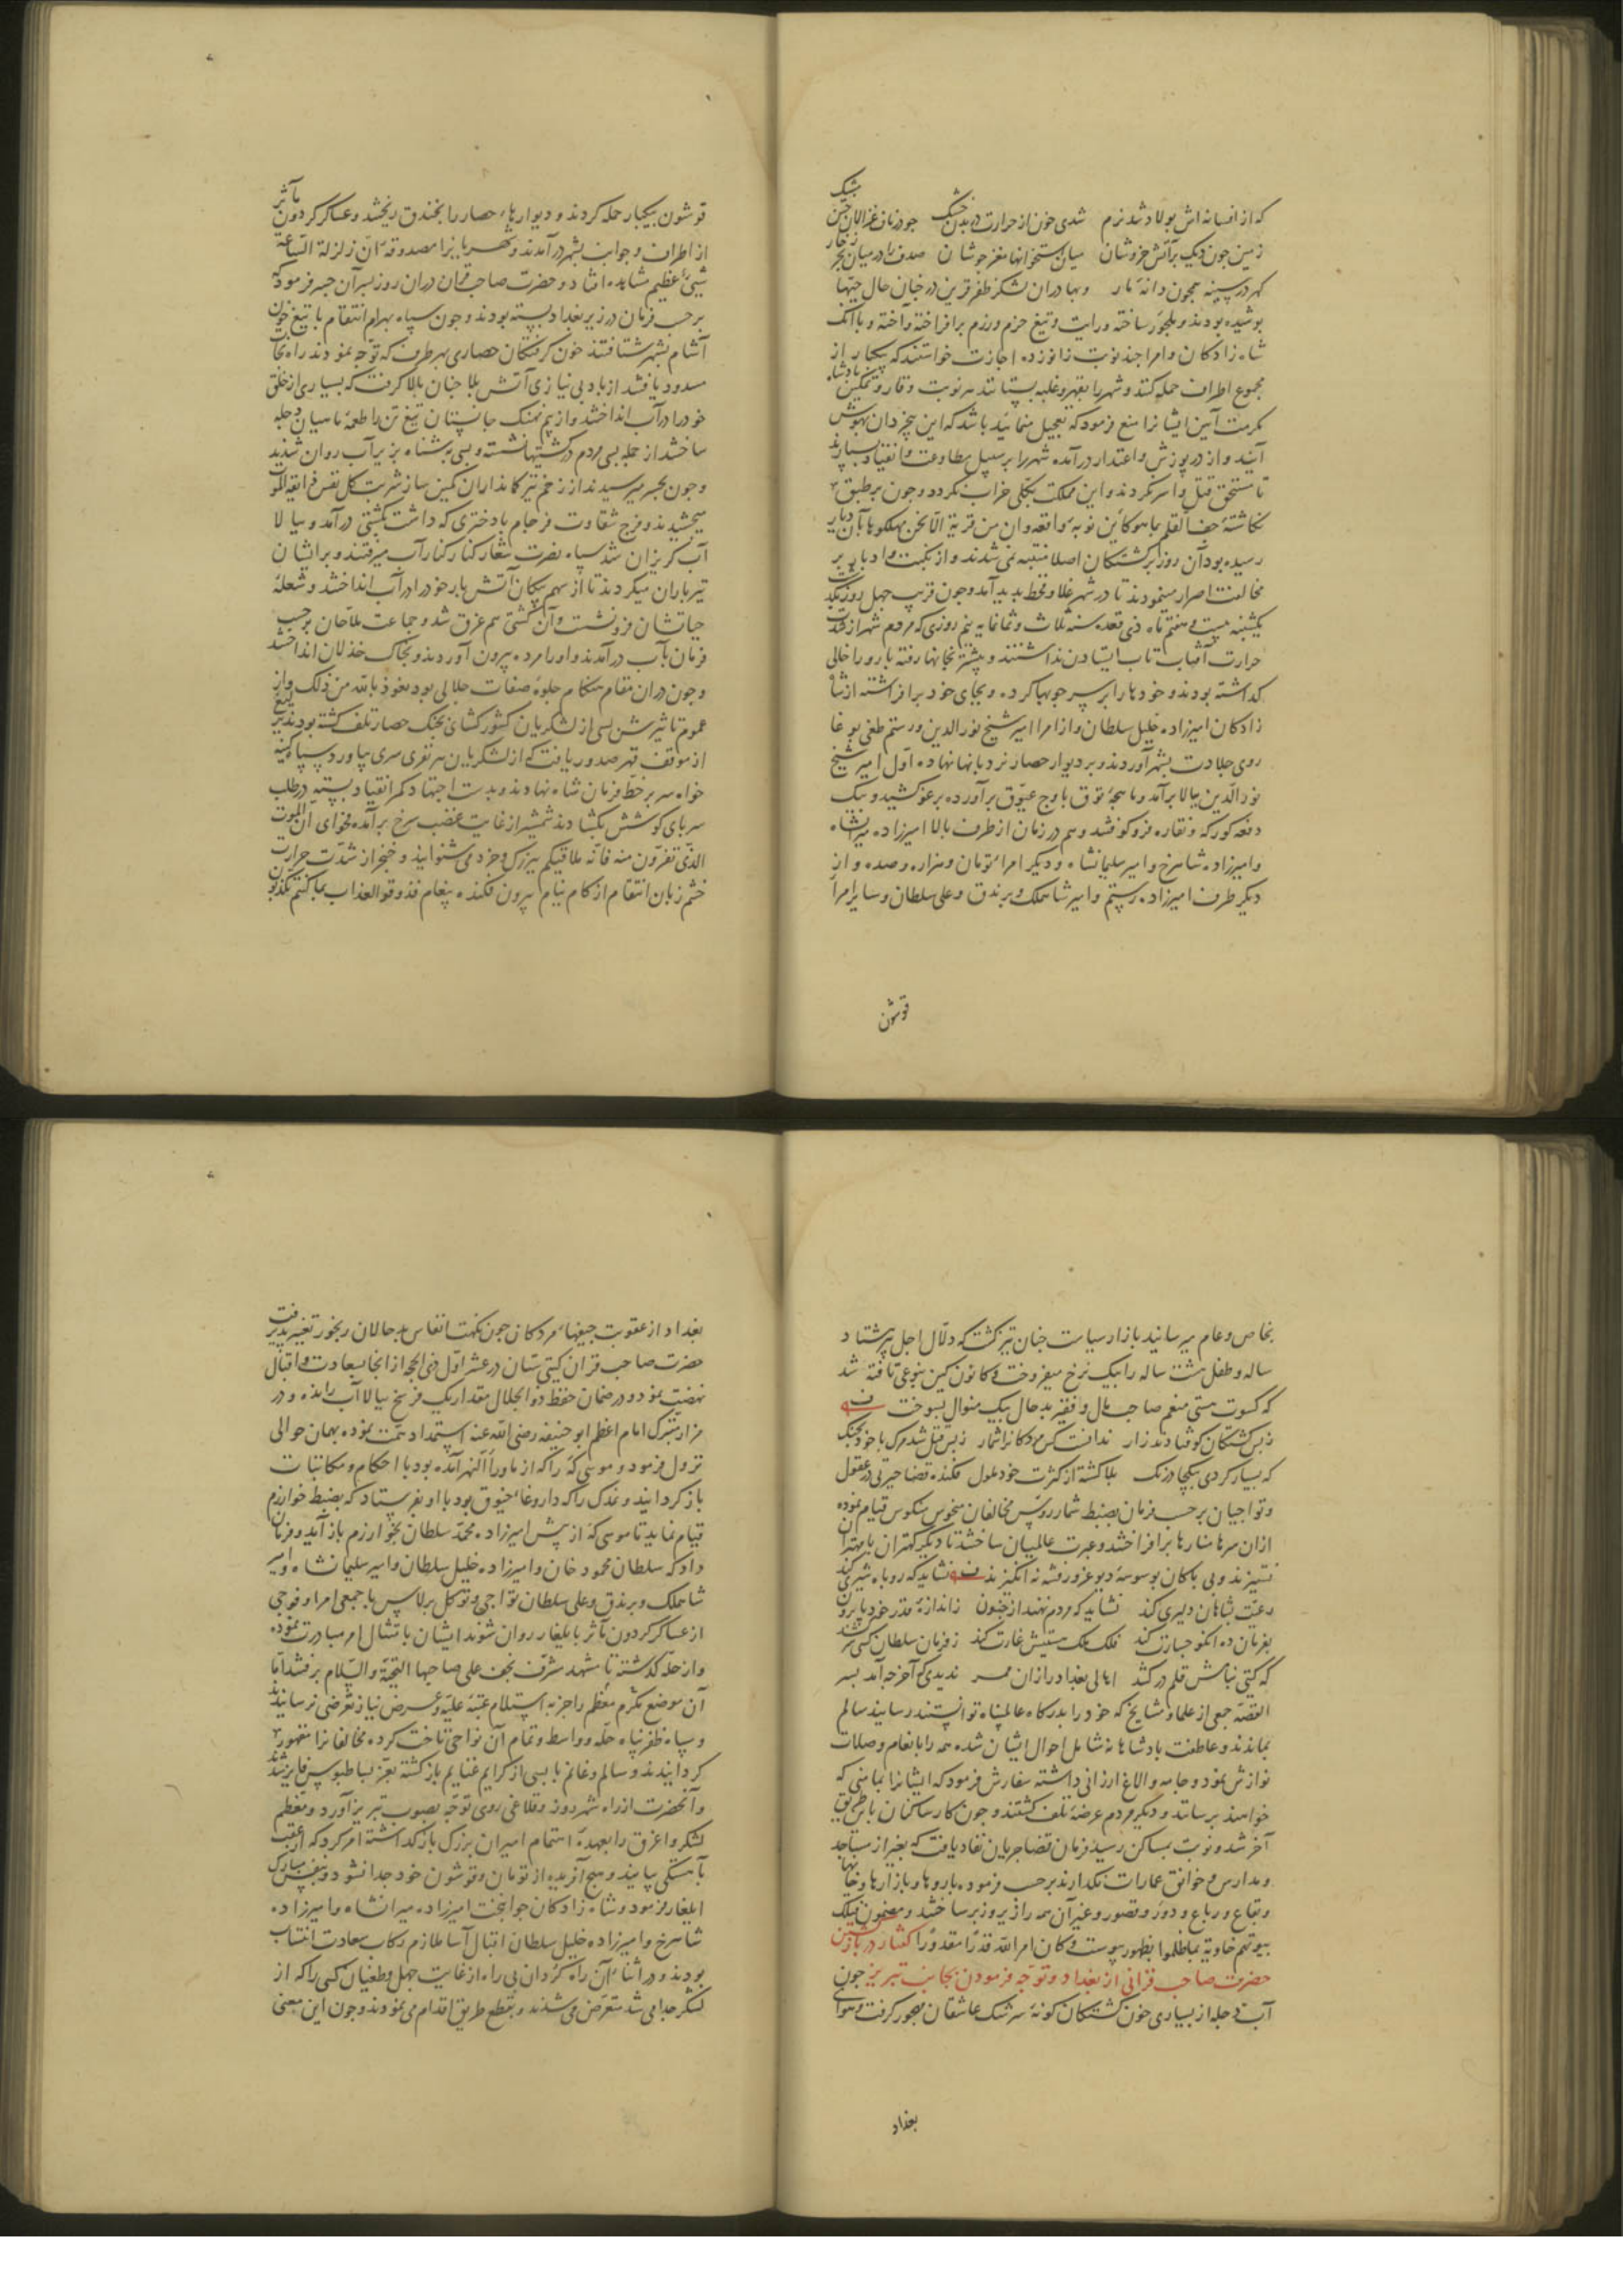 که از افسانه‌اش پولاد شد نرم شدی خون از حرارت در بدن خشک چو در ناف غزالان ختن مشک
زمین چون دیک بر آتش خروشان میان استخوانها مغز جوشان صدف را در میان بحر زخار
کهر در سینه همچون دانهٔ نار وبهادران لشکر ظفر قرین در چنان حال جیبها
پوشیده بودند و ملجور ساخته ورایت و تیغ حزم ورزم برافراخته وآخته و با آنک
شاه زادکان وامرا چند نوبت زانو زده اجازت خواستند که یکبار از
مجموع اطراف حمله کنند و شهر را بقهر و غلبه بستانند هر نوبت وقار و تمکین پادشاه
مکرمت آیین ایشانرا منع فرمود که تعجیل منمائید باشد که این بیخردان بهوش
آیند و از در پوزش واعتذار درآمده شهر را بر سبیل مطاوعت وانقیاد بسپارند
تا مستحق قتل واسر نکردند و این مملکت بکلی خراب نکردد و چون بر طبق
نکاشتهٔ جف القلم بما هو کاین نوبه واقعه وان من قریة الا نحن مهلکوها بآن دیار
رسیده بود آن روز برکشتکان اصلا متنبه نمی شدند واز نکبت وادبار بر
مخالفت اصرار مینمودند تا در شهر غلا وقحط پدید آمد وچون قریب چهل روز بگذشت
یکشنبه بیست وهفتم ماه ذی قعده سنه ثلاث وثمانمایه نیم روزی که مردم شهر از شدت
حرارت آفتاب تاب ایستادن نداشتند و بیشتر بخانها رفته بارو را خالی
کذاشته بودند وخودها را بر سر چوبها کرده و بجای خود برافراشته از شاه
زادکان امیرزاده خلیل سلطان واز امرا امیر شیخ نور الدین ورستم طغی بوغا
روی جلادت بشهر آوردند و بر دیوار حصار نردبانها نهاده اول امیر شیخ
نور الدین ببالا برآمد وماهچهٔ توق باوج عیوق برآورده برغو کشید و بیک
دفعه کورکه ونقاره فرو کوفتند وهم در زمان از طرف بالا امیرزاده میرانشاه
وامیرزاده شاهرخ وامیر سلیمانشاه و دیکر امرا تومان وهزاره وصده واز
دیکر طرف امیرزاده رستم وامیر شاهملک و برندق وعلی سلطان وسایر امرآ
قوشون
قوشون بیکبار حمله کردند و دیوارهاء حصار را بخندق ریختند وعساکر کردون مآثر
از اطراف وجوانب بشهر درآمدند وشهریانرا مصدوقه ان زلزلة الساعة
شیئ عظیم مشاهده افتاد وحضرت صاحب قران دران روز بسر آن جسر فرمود که
بر حسب فرمان در زیر بغداد بسته بودند وچون سپاه بهرام انتقام با تیغ خون
آشام بشهر شتافتند خون کرفتکان حصاری بهر طرف که توجه نمودند راه نجات
مسدود یافتند از باد بی نیازی آتش بلا چنان بالا کرفت که بسیاری از خلق
خود را در آب انداختند واز بیم نهنک جانستان تیغ تن را طعمهٔ ماهیان دجله
ساختند از جمله بسی مردم در کشتیها نشسته وبسی بشناه بزیر آب روان شدند
وچون بجسر میرسیدند از زخم تیر کمانداران کمین ساز شربت کل نفس ذایقة الموت
میچشیدند وفرج شقاوت فرجام با دختری که داشت بکشتی درآمد وببالا
آب کریزان شد سپاه نصرت شعار کنار کنار آب میرفتند وبر ایشان
تیرباران میکردند تا از سهم پیکان آتش بار خود را در آب انداختند وشعلهٔ
حیاتشان فرو نشست وآن کشتی هم غرق شد وجماعت ملاحان بر حسب
فرمان بآب درآمدند واورا مرده بیرون آوردند وبخاک خذلان انداختند
وچون دران مقام هنکام جلوهٔ صفات جلالی بود نعوذ بالله من ذلک واز
عموم تاثیرش بسی از لشکریان کشور کشای بجنک حصار تلف کشته بودند یرلیغ
از موقف قهر صدور یافت که از لشکریان هر نفری سری بیاورد وسپاه کینه
خواه سر بر خط فرمان شاه نهادند وبدست اجتهاد کمر انقیاد بسته در طلب
سر پای کوشش بکشادند شمشیر از غایت غضب سرخ برآمده فحوای ان الموت
الذی تفرون منه فانه ملاقیکم ببزرک وخرد می شنوانید وخنجر از شدت حرارت
خشم زبان انتقام از کام نیام بیرون فکنده پیغام فذوقوا العذاب بما کنتم تکذبون
بخاص وعام میرسانید بازار سیاست چنان تیز کشت که دلال اجل پیر هشتاد
ساله وطفل هشت ساله را بیک نرخ میفروخت وکانون کین بنوعی تافته شد
که کسوت هستی منعم صاحب مال وفقیر بدحال بیک منوال بسوخت
ز بس کشتکان کوفتادند زار ندانست کس مردکانرا شمار ز بس قتل شد مرک با خود بجنک
که بسیار کردی بیکجا درنک بلا کشته از کثرت خود ملول فکنده قضا حیرتی در عقول
وتواجیان بر حسب فرمان بضبط شمار روس مخالفان منحوس منکوس قیام نموده
ازان سرها منارها برافراختند وعبرت عالمیان ساختند تا دیکر کهتران با مهتران
نستیزند وبی باکان بوسوسهٔ دیو غرور فتنه نه انکیزند نشاید که روباه شیری کند
رعیت بشاهان دلیری کند نشاید که مردم نهند از جنون ز اندازهٔ قدر خود پا برون
بفرمان ده آنکو جسارت کند فلک ملک هستیش غارت کند ز فرمان سلطان کسی سر کشد
که کیتی بنامش قلم در کشد اهالی بغداد را زان ممر ندیدی که آخر چه آمد بسر
القصه جمعی از علما ومشایخ که خود را بدرکاه عالمپناه توانستند رسانید سالم
بماندند وعاطفت پادشاهانه شامل احوال ایشان شده همه را بانعام وصلات
نوازش نمود وجامه والاغ ارزانی داشته سفارش فرمود که ایشانرا بمامنی که
خواهند برسانند ودیکر مردم عرضهٔ تلف کشتند وچون کار ساکنان باین طریق
آخر شد ونوبت بمساکن رسید فرمان قضا جریان نفاذ یافت که بغیر از مساجد
ومدارس وخوانق عمارات نکذارند بر حسب فرموده باروها وبازارها وخانها
وبقاع ورباع ودور وقصور وغیر آن همه را زیر وزبر ساختند ومضمون فتلک
بیوتهم خاویة بما ظلموا بظهور پیوست وکان امر الله قدرا مقدورا کفتار در بازکشتن
حضرت صاحب قرانی از بغداد وتوجه فرمودن بجانب تبریز چون
آب دجله از بسیاری خون کشتکان کونهٔ سرشک عاشقان مهجور کرفت وهوای
بغداد
بغداد از عفونت جیفهاء مردکان چون نکهت انفاس بدحالان رنجور تغییر پذیرفت
حضرت صاحب قران کیتی ستان در عشر اول ذی الحجه از انجا بسعادت واقبال
نهضت نمود ودر ضمان حفظ ذو الجلال مقدار یک فرسخ ببالا آب رانده ودر
مزار متبرک امام اعظم ابو حنیفه رضی الله عنه استمداد همت نموده بهمان حوالی
نزول فرمود وموسی که را که از ماوراء النهر آمده بود با احکام ومکاتبات
باز کردانید وندک را که داروغاء خیوق بود با او بفرستاد که بضبط خوارزم
قیام نماید تا موسی که از پیش امیرزاده محمد سلطان بخوارزم باز آید وفرمان
داد که سلطان محمود خان وامیرزاده خلیل سلطان وامیر سلیمان شاه وامیر
شاهملک وبرندق وعلی سلطان تواجی وتوکل برلاس با جمعی امرا وفوجی
از عساکر کردون مآثر بایلغار روان شوند ایشان بامتثال امر مبادرت نموده
واز حله کذشته تا مشهد مشرف نجف علی صاحبها التحیة والسلام برفتند اما
آن موضع مکرم معظم را جز به استلام عتبهٔ علیه وعرض نیاز تعرضی نرسانیدند
وسپاه ظفر پناه حله وواسط وتمام آن نواحی تاخت کرده مخالفانرا مقهور
کردانیدند وسالم وغانم با بسی از کرایم غنایم بازکشته بعز بساط بوس فایز شدند
وآنحضرت از راه شهرزور وقلاغی روی توجه بصوب تبریز آورد ومعظم
لشکر واغرق را بعهدهٔ اهتمام امیران بزرک بازکذاشته امر کرد که از عقب
بآهستکی بیایند وهیچ آفریده از تومان وقوشون خود جدا نشود وبنفس مبارک
ایلغار فرمود وشاه زادکان جوانبخت امیرزاده میرانشاه وامیرزاده
شاهرخ وامیرزاده خلیل سلطان اقبال آسا ملازم رکاب سعادت انتساب
بودند ودر اثناء آن راه کردان بی راه از غایت جهل وطغیان کسی را که از
لشکر جدا می شد متعرض می شدند وبقطع طریق اقدام می نمودند وچون این معنی